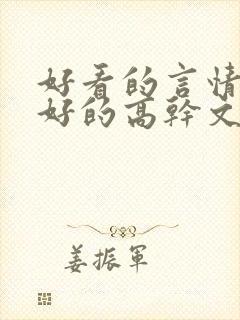 好看的言情
好的高幹文
姜振軍